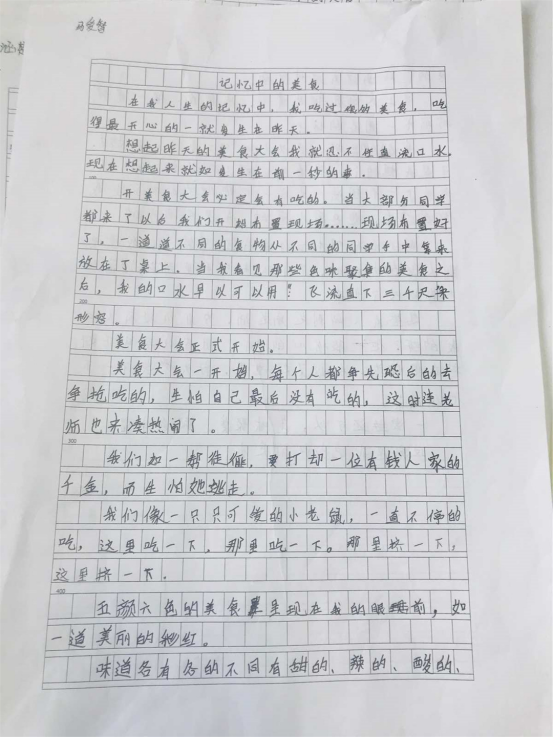 记忆中的美食
在我人生的记忆中，我吃过很多美食，吃
得最开心的一就发生在昨天。
想起昨天的美食大会我就迅不住直流口水。
现在想起来就如发生在胡一秒的事。
开美食大会必定会有吃的。当大部分同学
都来了以后我们开始布置现场……现场布置好
了，一道道不同的食物从不同的同学手中拿来
放在了桌上。当我看见那些色味聚食的美食之
后，我的口水早以可以用飞流直下三千尺来
形容。
300
美食大会正式开始。
美食大会一开始，每个人都争先恐后的去
争抢吃的，生怕自己最后没有吃的，这时连老
师也来凑热闹了。
300
我们如一帮佳偷，要打却一位有钱人家的
千金，而生怕她逃走。
我们像一只只可爱的小老鼠，一直不停的
吃，这里吃一下，那里吃一下。那里挤一下，
这里挤一下。
400
五颜六色的美食呈现在我的眼睛前，如
一道美丽的彩红。
味道各有各的不同有甜的、辣的、酸的、